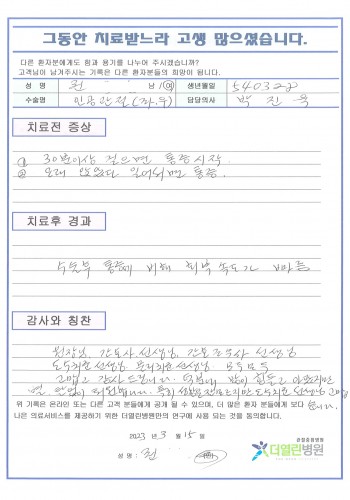 그동안 치료받느라 고생 많으셨습니다.
다른 환자분에게도 힘과 용기를 나누어 주시겠습니까?
고객님이 남겨주시는 기록은 다른 환자분들의 희망이 됩니다.
성 명 원 남 / 여 생년월일 540328
수술명 인공관절(좌,우) 담당의사 박진욱
치료전 증상
① 30분이상 걸으면 통증시작.
② 오래 앉았다 일어서면 통증.
치료후 경과
수술부 통증에 비해 회복 속도가 빠름
감사와 칭찬
원장님, 간호사 선생님, 간호조무사 선생님
도수치료선생님, 물리치료선생님 모두모두
고맙고 감사드립니다. 덕분에 많이 힘들고 아팠지만
도수치료 선생님
위 기록은 온라인 또는 다른 고객 분들에게 공개 될 수 있으며, 더 많은 환자 분들에게 보다
나은 의료서비스를 제공하기 위한 더열린병원만의 연구에 사용 되는 것을 동의합니다.
2023 년 3 월 15 일
성 명 : 원
관절중점병원
더열린병원